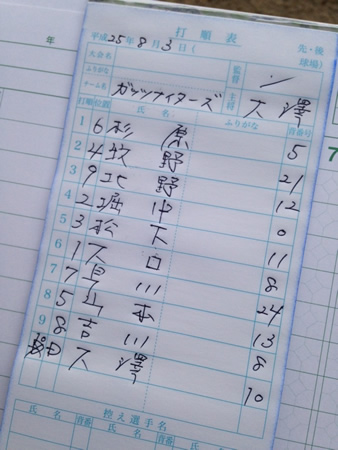 年
打順表
平成25年8月3日( 先・後
大会名 球場)
ふりがな 監督
チーム名 ガッツナイターズ 主将 大澤
打順 位置 氏名 ふりがな 背番号
1 6 杉原 5
2 4 牧野 21
3 9 北野 12
4 2 堀中 0
5 3 松下 11
6 1 大臼 8
7 7 川 24
8 5 山本 13
9 8 吉川 8
大澤 10
控え選手名
氏名 背番 氏名 背番
7